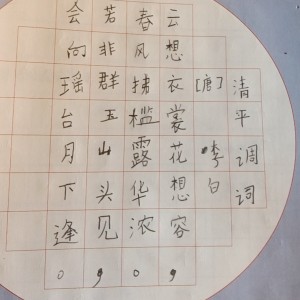 清平调词
[唐]李白
云想衣裳花想容，
春风拂槛露华浓。
若非群玉山头见，
会向瑶台月下逢。